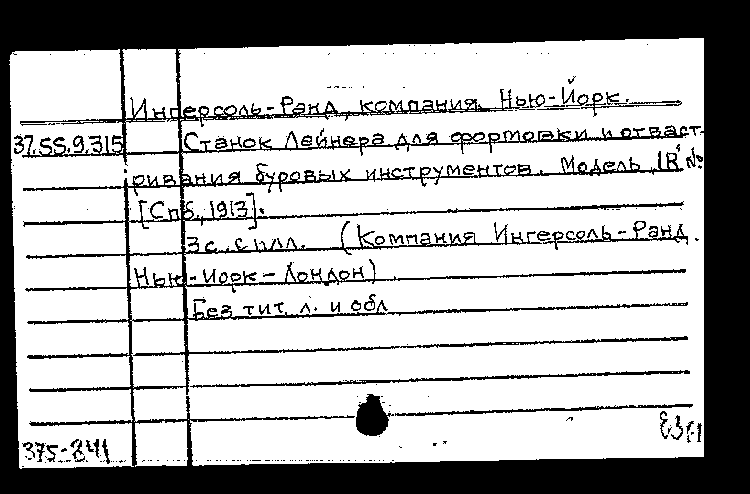 Ингерсоль-Ранд, компания. Нью-Йорк.
37.55.9.315 Станок Лейнера для фортовки и отваст-
ривания буровых инструментов. Модель "IR" №
[Спб., 1913].
3 с. с илл. (Компания Ингерсоль-Ранд.
Нью-Иорк-Лондон).
Без тит. л. и обл
375-841